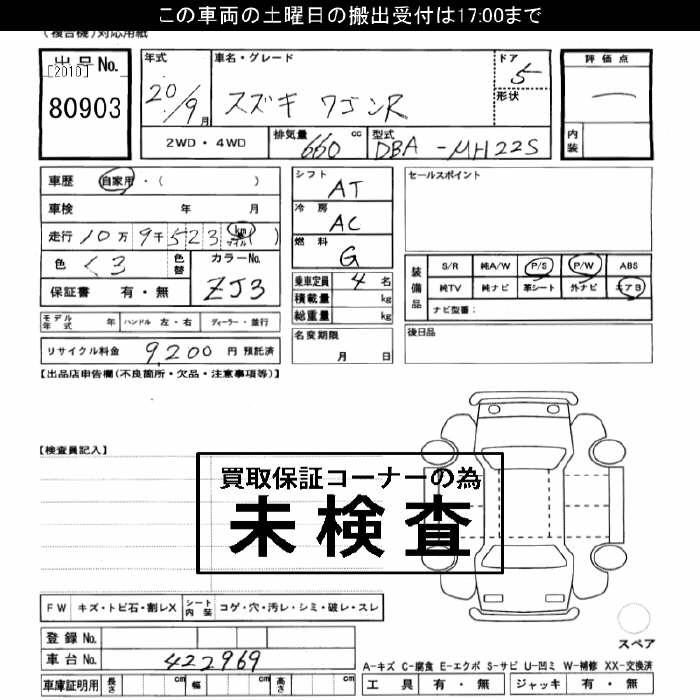 この車両の土曜日の搬出受付は17:00まで
(複合機)対応用紙
出品No.
[2010]
80903
年式
20/9月
車名・グレード
スズキ ワゴンR
ドア
5
形状
評価点
内装
2WD・4WD
排気量 660 cc
型式 DBA-MH22S
車歴 自家用・( )
車検 年 月
走行 10万9千523 km マイル ( )
色 くろ
色替
カラーNo.
ZJ3
保証書 有・無
シフト
AT
冷房
AC
燃料
G
乗車定員 4名
積載量 kg
総重量 kg
セールスポイント
装備品
S/R 純A/W P/S P/W ABS
純TV 純ナビ 革シート 外ナビ エアB
ナビ型番:
モデル年式 年 ハンドル 左・右 ディーラー・並行
リサイクル料金 9,200 円 預託済
名変期限
月 日
後日品
【出品店申告欄(不良箇所・欠品・注意事項等)】
【検査員記入】
買取保証コーナーの為
未検査
FW キズ・トビ石・割レX シート内装 コゲ・穴・汚レ・シミ・破レ・スレ
登録No.
車台No. 422969
車庫証明用 長さ cm 幅 cm 高さ cm
スペア
A-キズ C-腐食 E-エクボ S-サビ U-凹ミ W-補修 XX-交換済
工具 有・無 ジャッキ 有・無